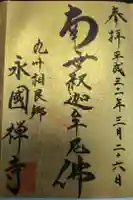 奉拝平成三十一年三月二六日
南無釈迦牟尼佛
九州相良郷
永國禅寺